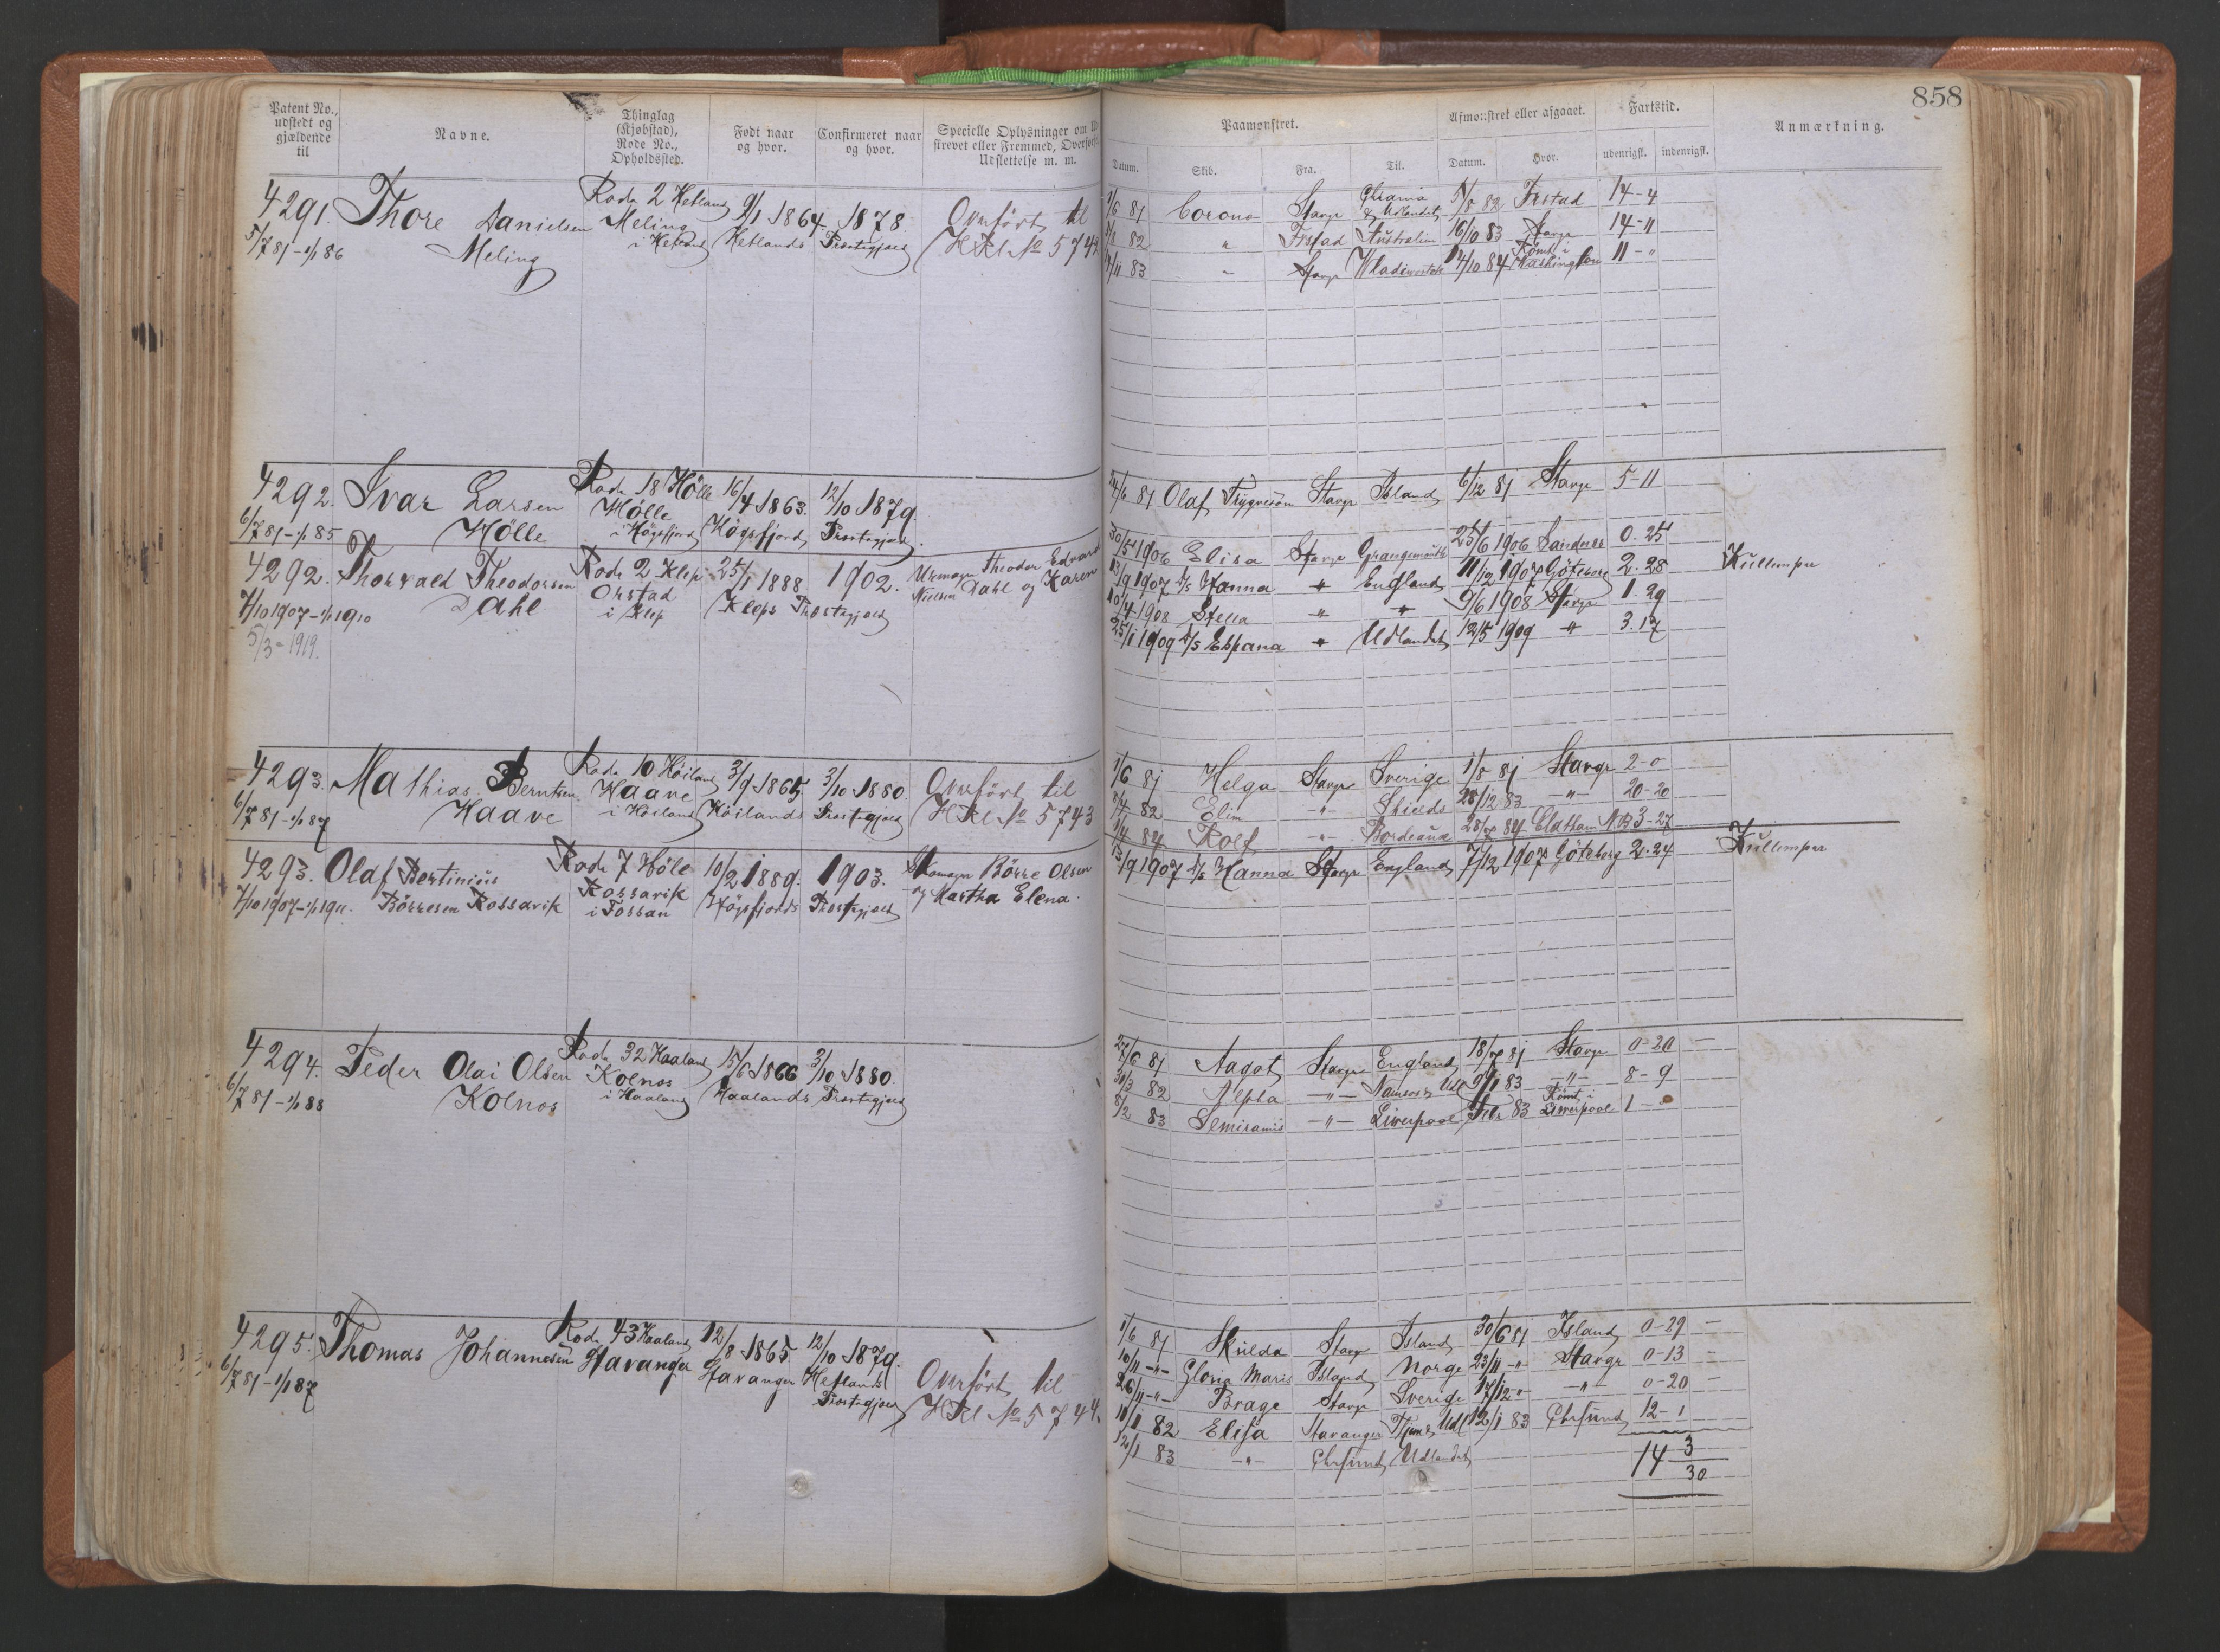 858
Patent No., udstedt og gjældende til
Navne.
Thinglag (Kjøbstad), Rode No., Opholdssted.
Født naar og hvor.
Confirmeret naar og hvor.
Specielle Oplysninger om
strevet eller Fremmed, Overført,
Udslettelse m. m.
Paamønstret.
Afmønstret eller afgaaet.
Fartstid.
Anmærkning.
Datum. Skib. Fra. Til. Datum. Hvor. udenrigsk. indenrigsk.
4291. Thore Danielsen Rode 2 Hetland 9/1 1864. 1878. Overført til
5/7 81 - 1/1 86 Meling Meling i Hetland Hetlands Præstegjæld HRl No 5742
/6 81 Corona Stavgr Chrania & Udlandet 5/8 82 Frstad 14-4
/8 82 " Frstad Australien 16/10 83 Stavgr 14-11
/11 83 " Stavgr Wladiwostok 14/10 84 Rømt i Washington 11-"
4292. Ivar Larsen Rode 18 Hölle 16/4 1863. 12/10 1879.
6/7 81 - 1/1 85 Hölle Hölle i Högsfjord Högsfjord Præstegjæld.
24/6 81 Olaf Trygveson Stavgr Island 6/12 81 Stavgr 5-11
4292. Thorvald Theodorsen Rode 2 Klep 25/1 1888 1902. Urmager Theodor Edvard
7/10 1907 - 1/1 1910 Dahl Orstad i Klep Kleps Præstegjæld Nielsen Dahl og Karen
5/3 - 1919.
30/5 1906 Elisa Stavgr Grangemouth 25/6 1906 Sandnes 0.25
13/9 1907 D/S Hanna " England 11/12 1907 Göteborg 2.28 Kullempar
10/4 1908 Stella " " 9/6 1908 Stavgr 1.29
25/1 1909 D/S España " Udlandet 12/5 1909 " 3.17
4293. Mathias Berntsen Rode 10 Höiland 3/9 1865 3/10 1880. Overført til
6/7 81 - 1/1 87 Haave Haave i Höiland Höilands Præstegjæld HRl No 5743
1/6 81 Helga Stavgr Sverige 1/8 81 Stavgr 2-0
8/4 82 Elim -"- Shields 28/12 83 -"- 20-20
/4 84 Rolf -"- Bordeaux 28/7 84 Chatham NB 3-27
4293. Olaf Bertinius Rode 7 Höle 10/2 1889. 1903. Skomager Börre Olsen
7/10 1907 - 1/1 1911. Börresen Rossavik Rossavik i Fossan Högsfjords Præstegjæld og Martha Elena.
13/9 1907 D/S Hanna Stavgr England 7/12 1907 Göteborg 2.24 Kullempar
4294. Peder Olai Olsen Rode 32 Haaland 15/6 1866 3/10 1880.
6/7 81 - 1/1 88 Kolnos Kolnos i Haaland Haalands Præstegjæld
27/6 81 Aagot Stavgr England 18/7 81 Stavgr 0-20 -
30/3 82 Alpha -"- Namsos & Udl 9/1 83 -"- 8-9
5/2 83 Semiramis -"- Liverpool Febr 83 Rømt i Liverpool 1-"
4295. Thomas Johannesen Rode 43 Haaland 12/8 1865 12/10 1879. Overført til
6/7 81 - 1/1 87 Havanger Havanger Hetlands Præstegjæld HRl No 5744.
1/6 81 Skulda Stavgr Island 30/6 81 Island 0-29 -
10/11 -"- Gloria Maris Island Norge 23/11 -"- Stavgr 0-13 -
26/11 -"- Brage Stavgr Sverige 17/12 -"- -"- 0-20 -
10/1 82 Elisa Stavanger Udl 12/1 83 Chrsund 12-1
12/1 83 -"- Chrsund Udlandet
14 3/30